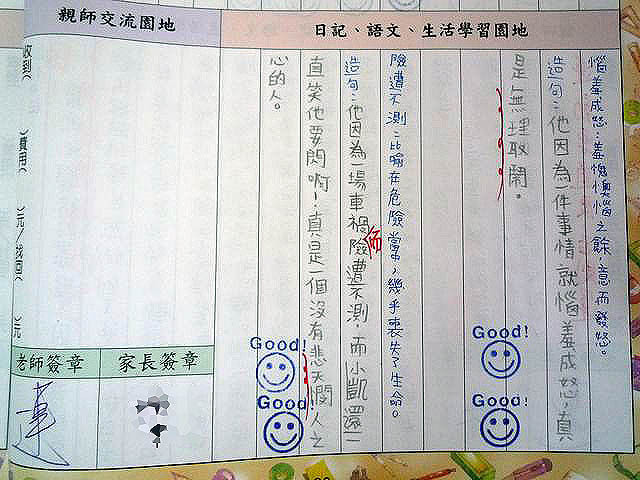 親師交流園地
日記、語文、生活學習園地
惱羞成怒:羞愧懊惱之餘,意而發怒。
造句:他因為一件事情就惱羞成怒,真
是無理取鬧。
Good!
Good!
險遭不測:比喻在危險當中,幾乎喪失了生命。
造句:他因為一場車禍險遭不測,而小凱還一
直笑他要閃啊!真是一個沒有悲天憫人之
心的人。
Good!
Good!
收到( )費用( )元/找回( )元
老師簽章
家長簽章